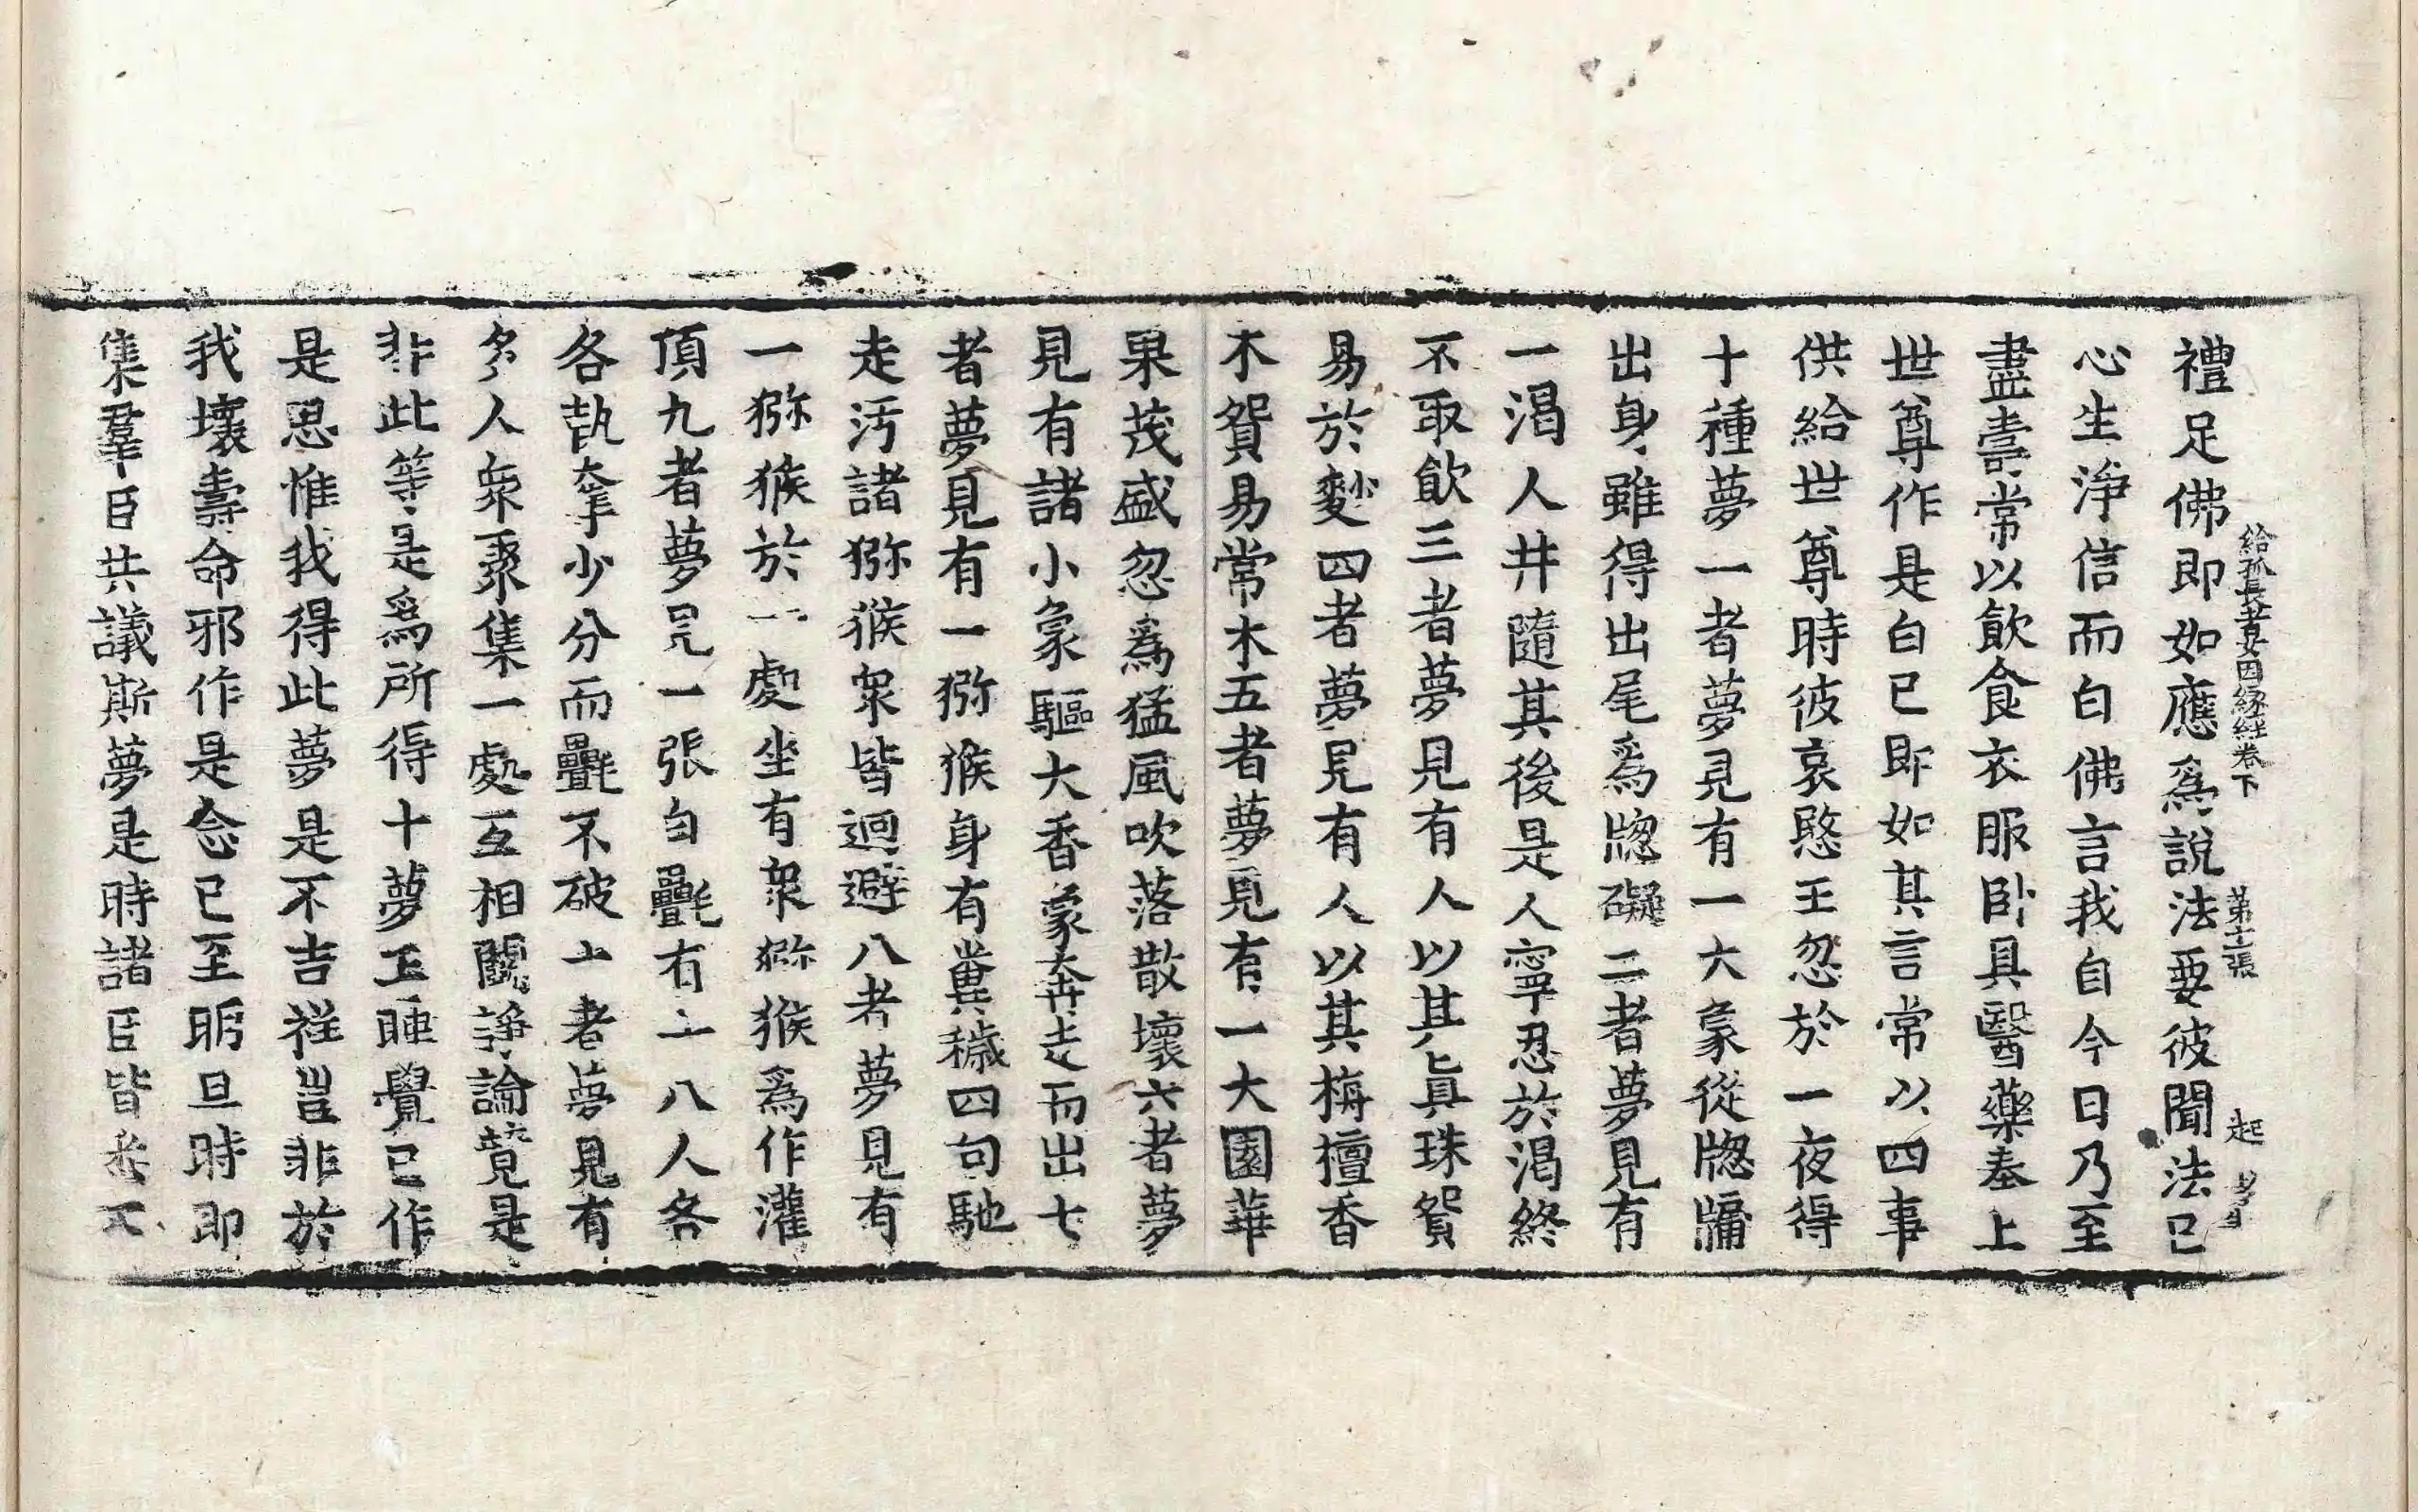 給孤長者女因緣經卷下 第十二張 起
禮足佛即如應爲說法要彼聞法已
心生淨信而白佛言我自今日乃至
盡壽常以飲食衣服卧具醫藥奉上
世尊作是白已即如其言常以四事
供給世尊時彼哀愍王忽於一夜得
十種夢一者夢見有一大象從牎牖
出身雖得出尾爲牎礙二者夢見有
一渴人井隨其後是人寧忍於渴終
不取飲三者夢見有人以其真珠貿
易於麨四者夢見有人以其栴檀香
木貿易常木五者夢見有一大園華
果茂盛忽爲猛風吹落散壞六者夢
見有諸小象驅大香象奔走而出七
者夢見有一獼猴身有糞穢四向馳
走汚諸獼猴衆皆迴避八者夢見有
一獼猴於一處坐有衆獼猴爲作灌
頂九者夢見一張白㲲有十八人各
各執奪少分而㲲不破十者夢見有
多人衆聚集一處互相鬪諍論競是
非此等是爲所得十夢王睡覺已作
是思惟我得此夢是不吉祥豈非於
我壞壽命邪作是念已至明旦時即
集羣臣共議斯夢是時諸臣皆悉不